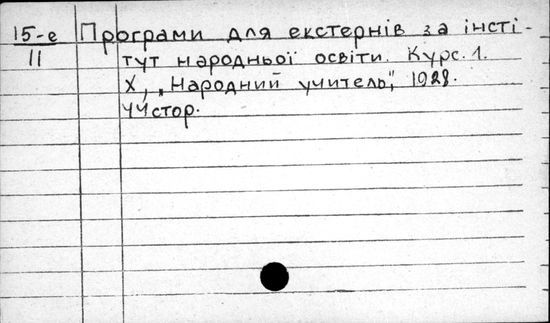 15-е
11
Програми для екстернів за інсті-
тут народньої освіти. Курс. 1.
Х, „Народний учитель", 1928.
44стор.